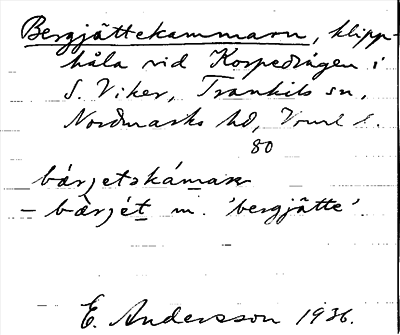 Bergjättekammarn, klipp-
håla vid Korpedrågen i
S. Viker, Trankils sn,
Nordmarks hd, Vrml l.
80
bárjetskámarn
– bàrjét m. 'bergjätte'
E. Andersson 1936.